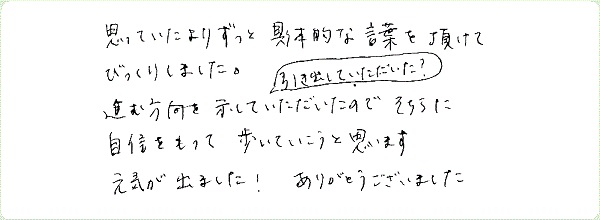 思っていたよりずっと 具体的な言葉を頂けて
びっくりしました。
引き出していただいた?
進む方向を示していただいたので そちらに
自信をもって 歩いていこうと思います
元気が出ました! ありがとうございました